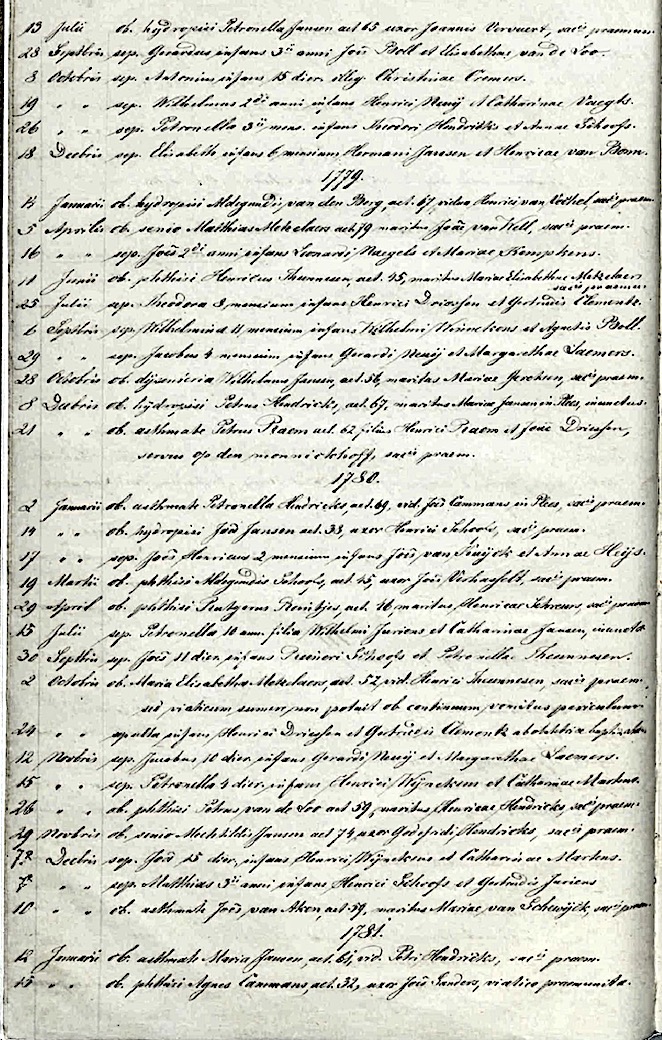 13 Julii ob. hydropisi Petronella Jansen aet 65 uxor Joannis Vervuert, sacis praemun.
28 Septbris sep. Gerardus infans 3ii anni Jois Boll et Elisabethae van de Loo.
8 Octobris sep. Antonius infans 15 dier. illeg. Christinae Cremers.
19 " " sep. Wilhelmus 2di anni infans Henrici Neuij et Catharinae Vaegts.
26 " " sep. Petronella 3ii mens. infans Theodori Hendricks et Annae Schoofs.
18 Decbris sep. Elisabeth infans 6 mensium Hermani Janssen et Henricae van Bonn.
1779.
14 Januarii ob. hydropisi Aldegundis van den Berg, aet. 67, vidua Henrici van sacis praem.
5 Aprilis ob. senio Matthias Metzelaers aet 79 maritus Joae van Kell, sacis praem.
16 " " sep. Jois 2di anni infans Leonardi Naegels et Mariae Kempkens.
11 Junii ob. phthisi Henricus Theunnesen, aet. 45, maritus Mariae Elisabethae Metzelaers
sacis praemun.
25 Julii sep. Theodora 8 mensium infans Henrici Driessen et Gertrudis Clements.
6 Septbris sep. Wilhelmina 11 mensium infans Wilhelmi et Agnetis Boll.
29 " " sep. Jacobus 4 mensium infans Gerardi Neuij et Margarethae Laemers.
28 Octobris ob. dijsenteria Wilhelmus Jansen, aet. 56, maritus Mariae sacis praem.
8 Decbris ob. hydropisi Petrus Hendricks, aet. 67, maritus Mariae Jansen in Plees, inunctus.
21 " " ob. asthmate Petrus Praem aet. 62 filius Henrici Praem et Joae Driessen,
servus op den monnickhoff, sacis praem.
1780.
2 Januarii ob. asthmate Petronella Hendricks, aet. 69, vid. Jois Cammans in Plees, sacis praem.
14 " " ob. hydropisi Joa Jansen aet. 38, uxor Henrici Schoofs, sacis praem.
17 " " sep. Jois Henricus 2 mensium infans Jois van et Annae Heijs.
19 Martii ob. phthisi Aldegundis Schoofs, aet. 45, uxor Jois Verhasselt, sacis praem.
29 April ob. phthisi Rutgerus Reintjes, aet. 46 maritus Henricae Schreurs, sacis praem
15 Julii sep. Petronella 10 ann. filia Wilhelmi Juriens et Catharinae Jansen, inuncta
30 Septbris sep. Jois 11 dier. infans Schoofs et Petronellae Theunnesen.
2 Octobris ob. Maria Elisabetha Metzelaers, aet. 52 vid. Henrici Theunnesen, sacis praem,
sed viaticum sumere non potuit ob continuum vomitus periculum.
24 " " sepulta infans Henrici Driessen et Gertrudis Clements ab obstetrice baptizata.
12 Novbris sep. Jacobus 10 dier. infans Gerardi Neuij et Margarethae Laemers.
15 " " sep. Petronella 4 dier. infans Henrici Wijnekens et Catharinae Martens.
26 " " ob. phthisi Petrus van de Loo aet 59, maritus Henricae Hendricks, sacis praem.
29 Novbris ob. senio Mechtildis Jansen aet 74, uxor Godefridi Hendricks, sacis praem.
7a Decbris sep. Jois 15 dier. infans Henrici Wijnekens et Catharinae Martens.
7a " " sep. Matthias 3ii anni infans Henrici Schoofs et Gertrudis Juriens
10 " " ob. asthmate Jois van Aken, aet. 59, maritus Mariae van Schewijck, sacis praem
1781.
12 Januarii ob. asthmate Maria Jansen, aet. 61, vid. Petri Hendricks, sacis praem.
15 " " ob. phthisi Agnes Cammans, aet. 32, uxor Jois Sanders, viatico praemunita.